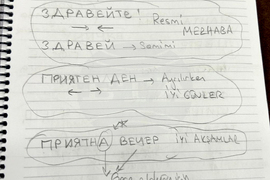 ЗДРАВЕЙТЕ! Resmi
MERHABA
ЗДРАВЕЙ → Samimi
ПРИЯТЕН ДЕН → Ayrılırken
İYİ GÜNLER
ПРИЯТНА ВЕЧЕР İYİ AKŞAMLAR